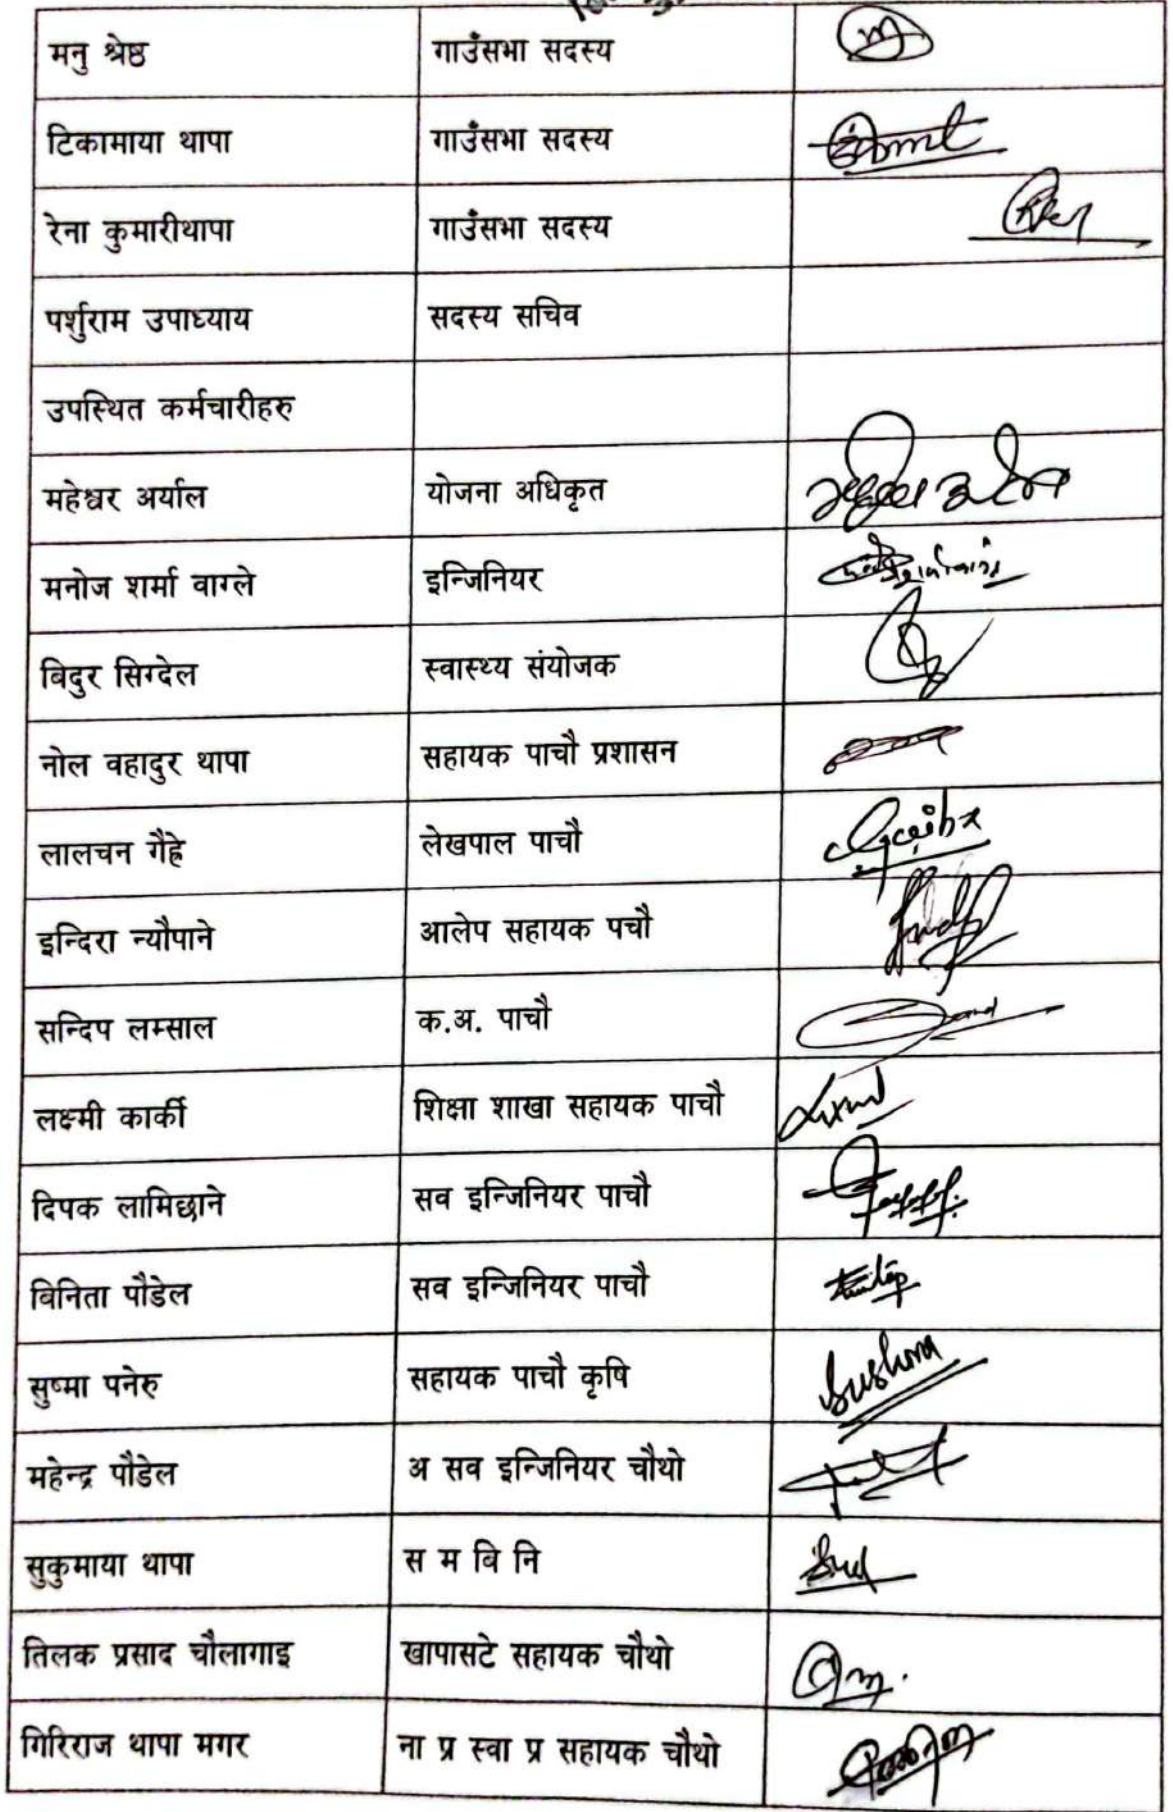 मनु श्रेष्ठ गाउँसभा सदस्य
टिकामाया थापा गाउँसभा सदस्य
रेना कुमारीथापा गाउँसभा सदस्य
पर्शुराम उपाध्याय सदस्य सचिव
उपस्थित कर्मचारीहरु
महेश्वर अर्याल योजना अधिकृत
मनोज शर्मा वाग्ले इन्जिनियर
बिदुर सिग्देल स्वास्थ्य संयोजक
नोल वहादुर थापा सहायक पाचौ प्रशासन
लालचन गैह्रे लेखपाल पाचौ
इन्दिरा न्यौपाने आलेप सहायक पचौ
सन्दिप लम्साल क.अ. पाचौ
लक्ष्मी कार्की शिक्षा शाखा सहायक पाचौ
दिपक लामिछाने सव इन्जिनियर पाचौ
बिनिता पौडेल सव इन्जिनियर पाचौ
सुष्मा पनेरु सहायक पाचौ कृषि Sushma
महेन्द्र पौडेल अ सव इन्जिनियर चौथो
सुकुमाया थापा स म बि नि
तिलक प्रसाद चौलागाइ खापासटे सहायक चौथो
गिरिराज थापा मगर ना प्र स्वा प्र सहायक चौथो